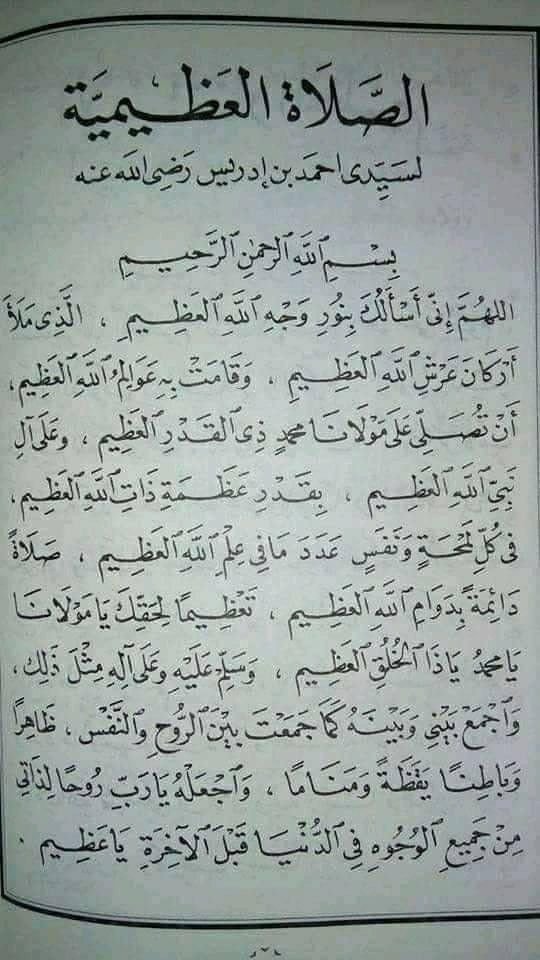 الصَّلَاةُ العَظِيمِيَّة
لسَيِّدِى احمَد بن إدريس رَضِى الله عنه
بِسْمِ ٱللَّهِ ٱلرَّحْمٰنِ ٱلرَّحِيمِ
اللهُمَّ إِنِّى أَسْأَلُكَ بِنُورِ وَجْهِ ٱللَّهِ ٱلعَظِيمِ ، الَّذِى مَلَأَ
أَرْكَانَ عَرْشِ ٱللَّهِ ٱلعَظِيمِ ، وَقَامَتْ بِهِ عَوَالِمُ ٱللَّهِ ٱلعَظِيمِ،
أَنْ تُصَلِّىَ عَلَى مَوْلَانَا محمدٍ ذِى ٱلقَدْرِ ٱلعَظِيمِ ، وعَلَى آلِ
نَبِىِّ ٱللَّهِ ٱلعَظِيمِ ، بِقَدْرِ عَظَمَةِ ذَاتِ ٱللَّهِ ٱلعَظِيمِ،
فى كُلِّ لَمْحَةٍ وَنَفَسٍ عَدَدَ مَا فى عِلْمِ ٱللَّهِ ٱلعَظِيمِ ، صَلَاةً
دَائِمَةً بِدَوَامِ ٱللَّهِ ٱلعَظِيمِ ، تَعْظِيمًا لِحَقِّكَ يَا مَوْلَانَا
يَا محمدُ يَا ذَا ٱلخُلُقِ ٱلعَظِيمِ ، وَسَلِّمْ عَلَيْهِ وعَلَى آلِهِ مِثْلَ ذَلِكَ،
وَٱجْمَعْ بَيْنِى وَبَيْنَهُ كَمَا جَمَعْتَ بَيْنَ ٱلرُّوحِ وٱلنَّفْسِ، ظَاهِرًا
وَبَاطِنًا يَقَظَةً وَمَنَامًا ، وَٱجْعَلْهُ يَارَبِّ رُوحًا لِذَاتِى
مِنْ جَمِيعِ ٱلوُجُوهِ فى ٱلدُّنْيَا قَبْلَ ٱلآخِرَةِ يَا عَظِيمُ .